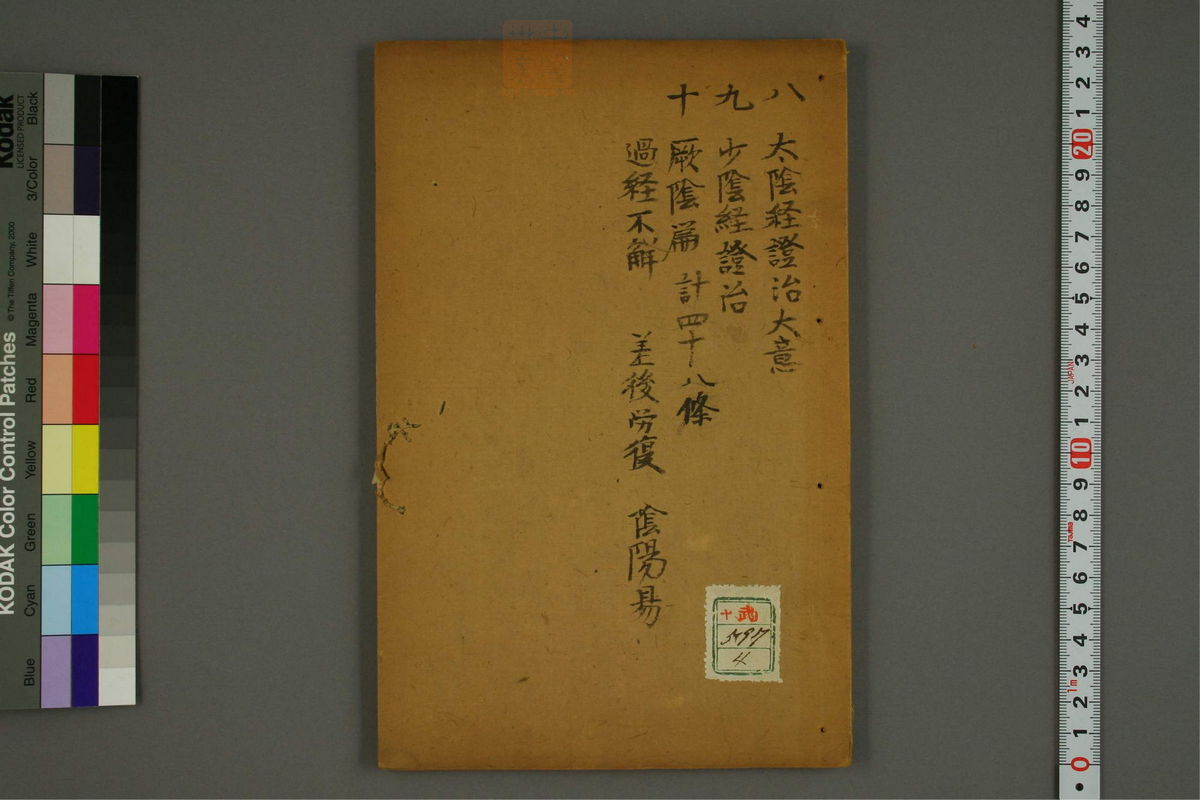 八 太陰経證治大意
九 少陰経證治
十 厥陰篇 計四十八條
過経不解 差後労復 陰陽易
十
5797
4
Kodak
LICENSED PRODUCT
KODAK Color Control Patches
© The Tiffen Company, 2000
Blue
Cyan
Green
Yellow
Red
Magenta
White
3/Color
Black
4
3
2
1
20
9
8
7
6
5
4
3
JAPAN
2
1
10
9
8
7
6
5
4
3
1m
2
1
0